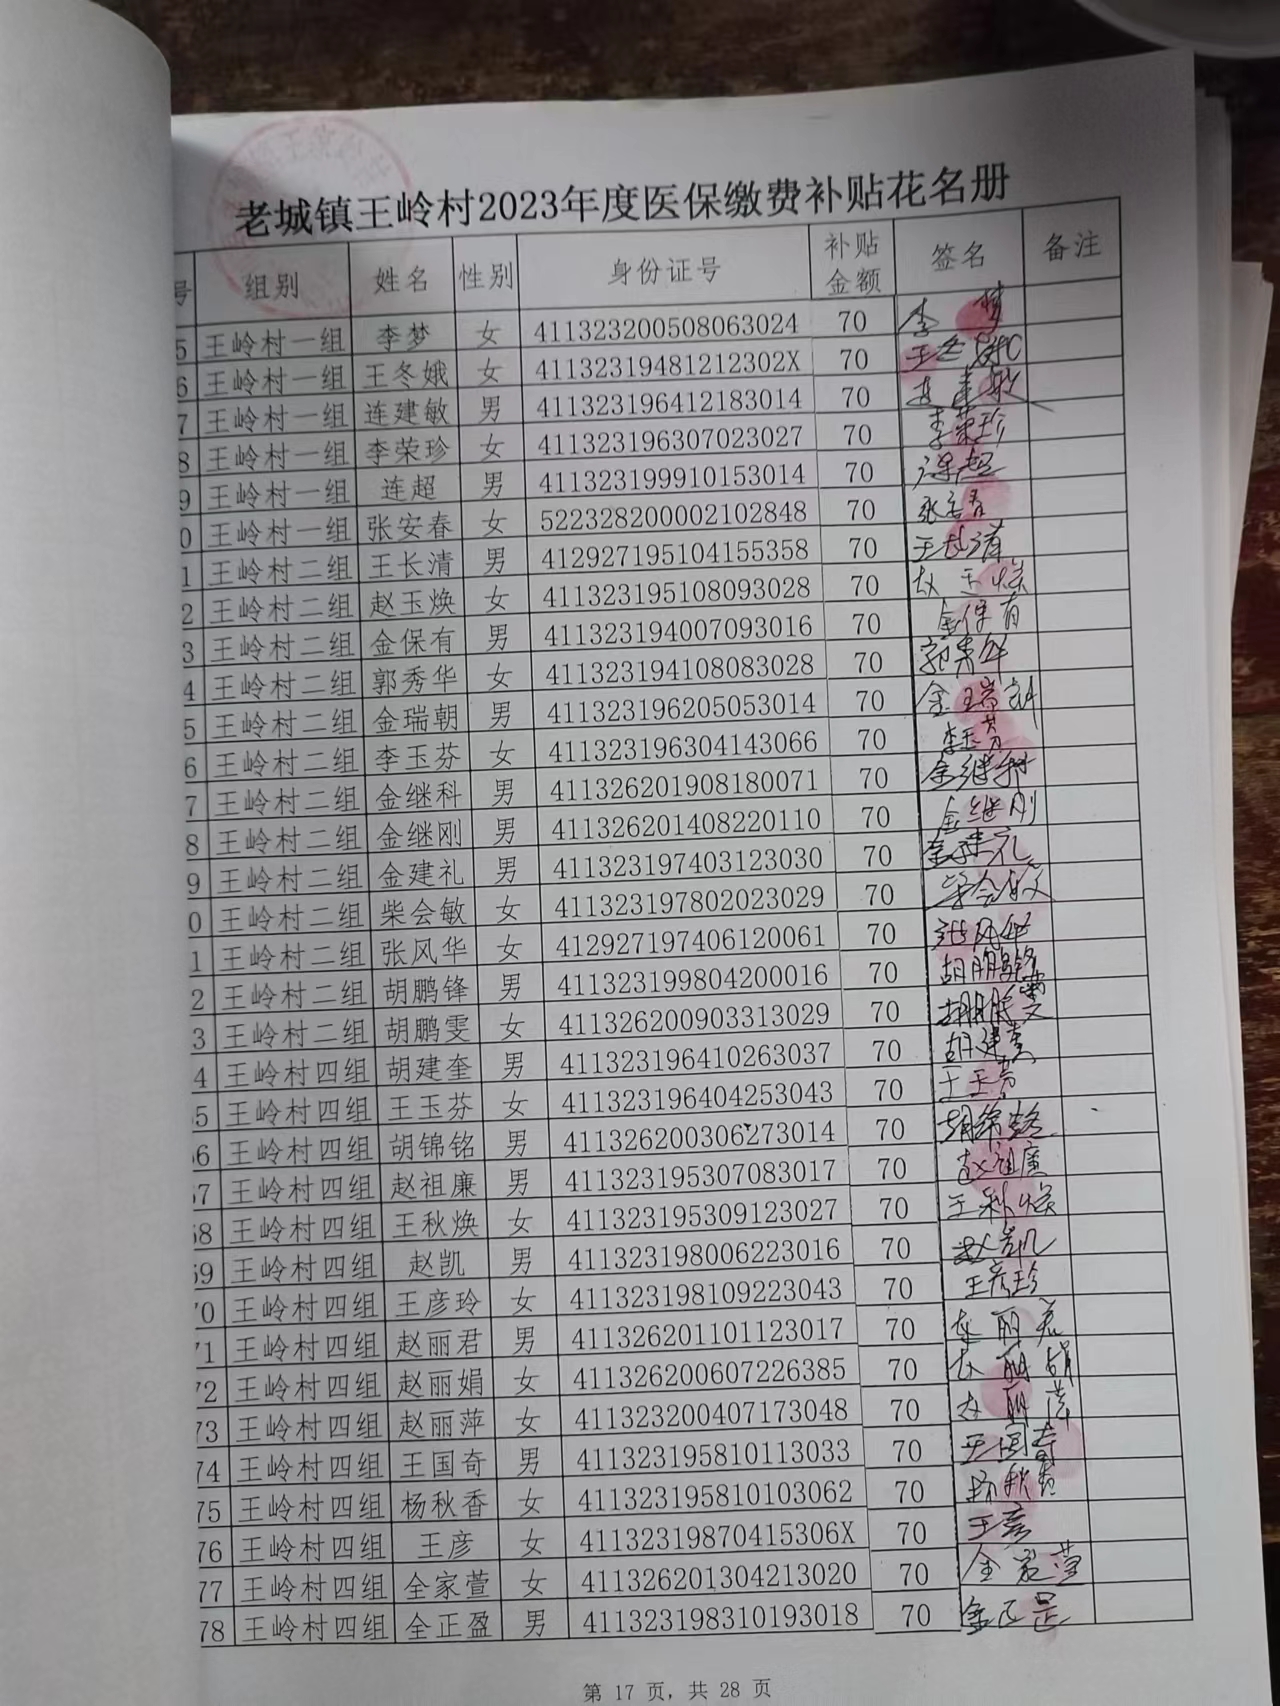 老城镇王岭村2023年度医保缴费补贴花名册
号 组别 姓名 性别 身份证号 补贴金额 签名 备注
5 王岭村一组 李梦 女 411323200508063024 70 李梦
6 王岭村一组 王冬娥 女 41132319481212302X 70 王冬娥
7 王岭村一组 连建敏 男 411323196412183014 70 连建敏
8 王岭村一组 李荣珍 女 411323196307023027 70 李荣珍
9 王岭村一组 连超 男 411323199910153014 70 连超
0 王岭村一组 张安春 女 522328200002102848 70 张安春
1 王岭村二组 王长清 男 412927195104155358 70 王长清
2 王岭村二组 赵玉焕 女 411323195108093028 70 赵玉焕
3 王岭村二组 金保有 男 411323194007093016 70 金保有
4 王岭村二组 郭秀华 女 411323194108083028 70 郭秀华
5 王岭村二组 金瑞朝 男 411323196205053014 70 金瑞朝
6 王岭村二组 李玉芬 女 411323196304143066 70 李玉芬
7 王岭村二组 金继科 男 411326201908180071 70 金继科
8 王岭村二组 金继刚 男 411326201408220110 70 金继刚
9 王岭村二组 金建礼 男 411323197403123030 70 金建礼
0 王岭村二组 柴会敏 女 411323197802023029 70 柴会敏
1 王岭村二组 张风华 女 412927197406120061 70 张风华
2 王岭村二组 胡鹏锋 男 411323199804200016 70 胡鹏锋
3 王岭村二组 胡鹏雯 女 411326200903313029 70 胡鹏雯
4 王岭村四组 胡建奎 男 411323196410263037 70 胡建奎
65 王岭村四组 王玉芬 女 411323196404253043 70 王玉芬
66 王岭村四组 胡锦铭 男 411326200306273014 70 胡锦铭
67 王岭村四组 赵祖廉 男 411323195307083017 70 赵祖廉
68 王岭村四组 王秋焕 女 411323195309123027 70 王秋焕
69 王岭村四组 赵凯 男 411323198006223016 70 赵凯
70 王岭村四组 王彦玲 女 411323198109223043 70 王彦玲
71 王岭村四组 赵丽君 男 411326201101123017 70 赵丽君
72 王岭村四组 赵丽娟 女 411326200607226385 70 赵丽娟
73 王岭村四组 赵丽萍 女 411323200407173048 70 赵丽萍
74 王岭村四组 王国奇 男 411323195810113033 70 王国奇
75 王岭村四组 杨秋香 女 411323195810103062 70 杨秋香
76 王岭村四组 王彦 女 41132319870415306X 70 王彦
77 王岭村四组 全家萱 女 411326201304213020 70 全家萱
78 王岭村四组 全正盈 男 411323198310193018 70 全正盈
第 17 页，共 28 页